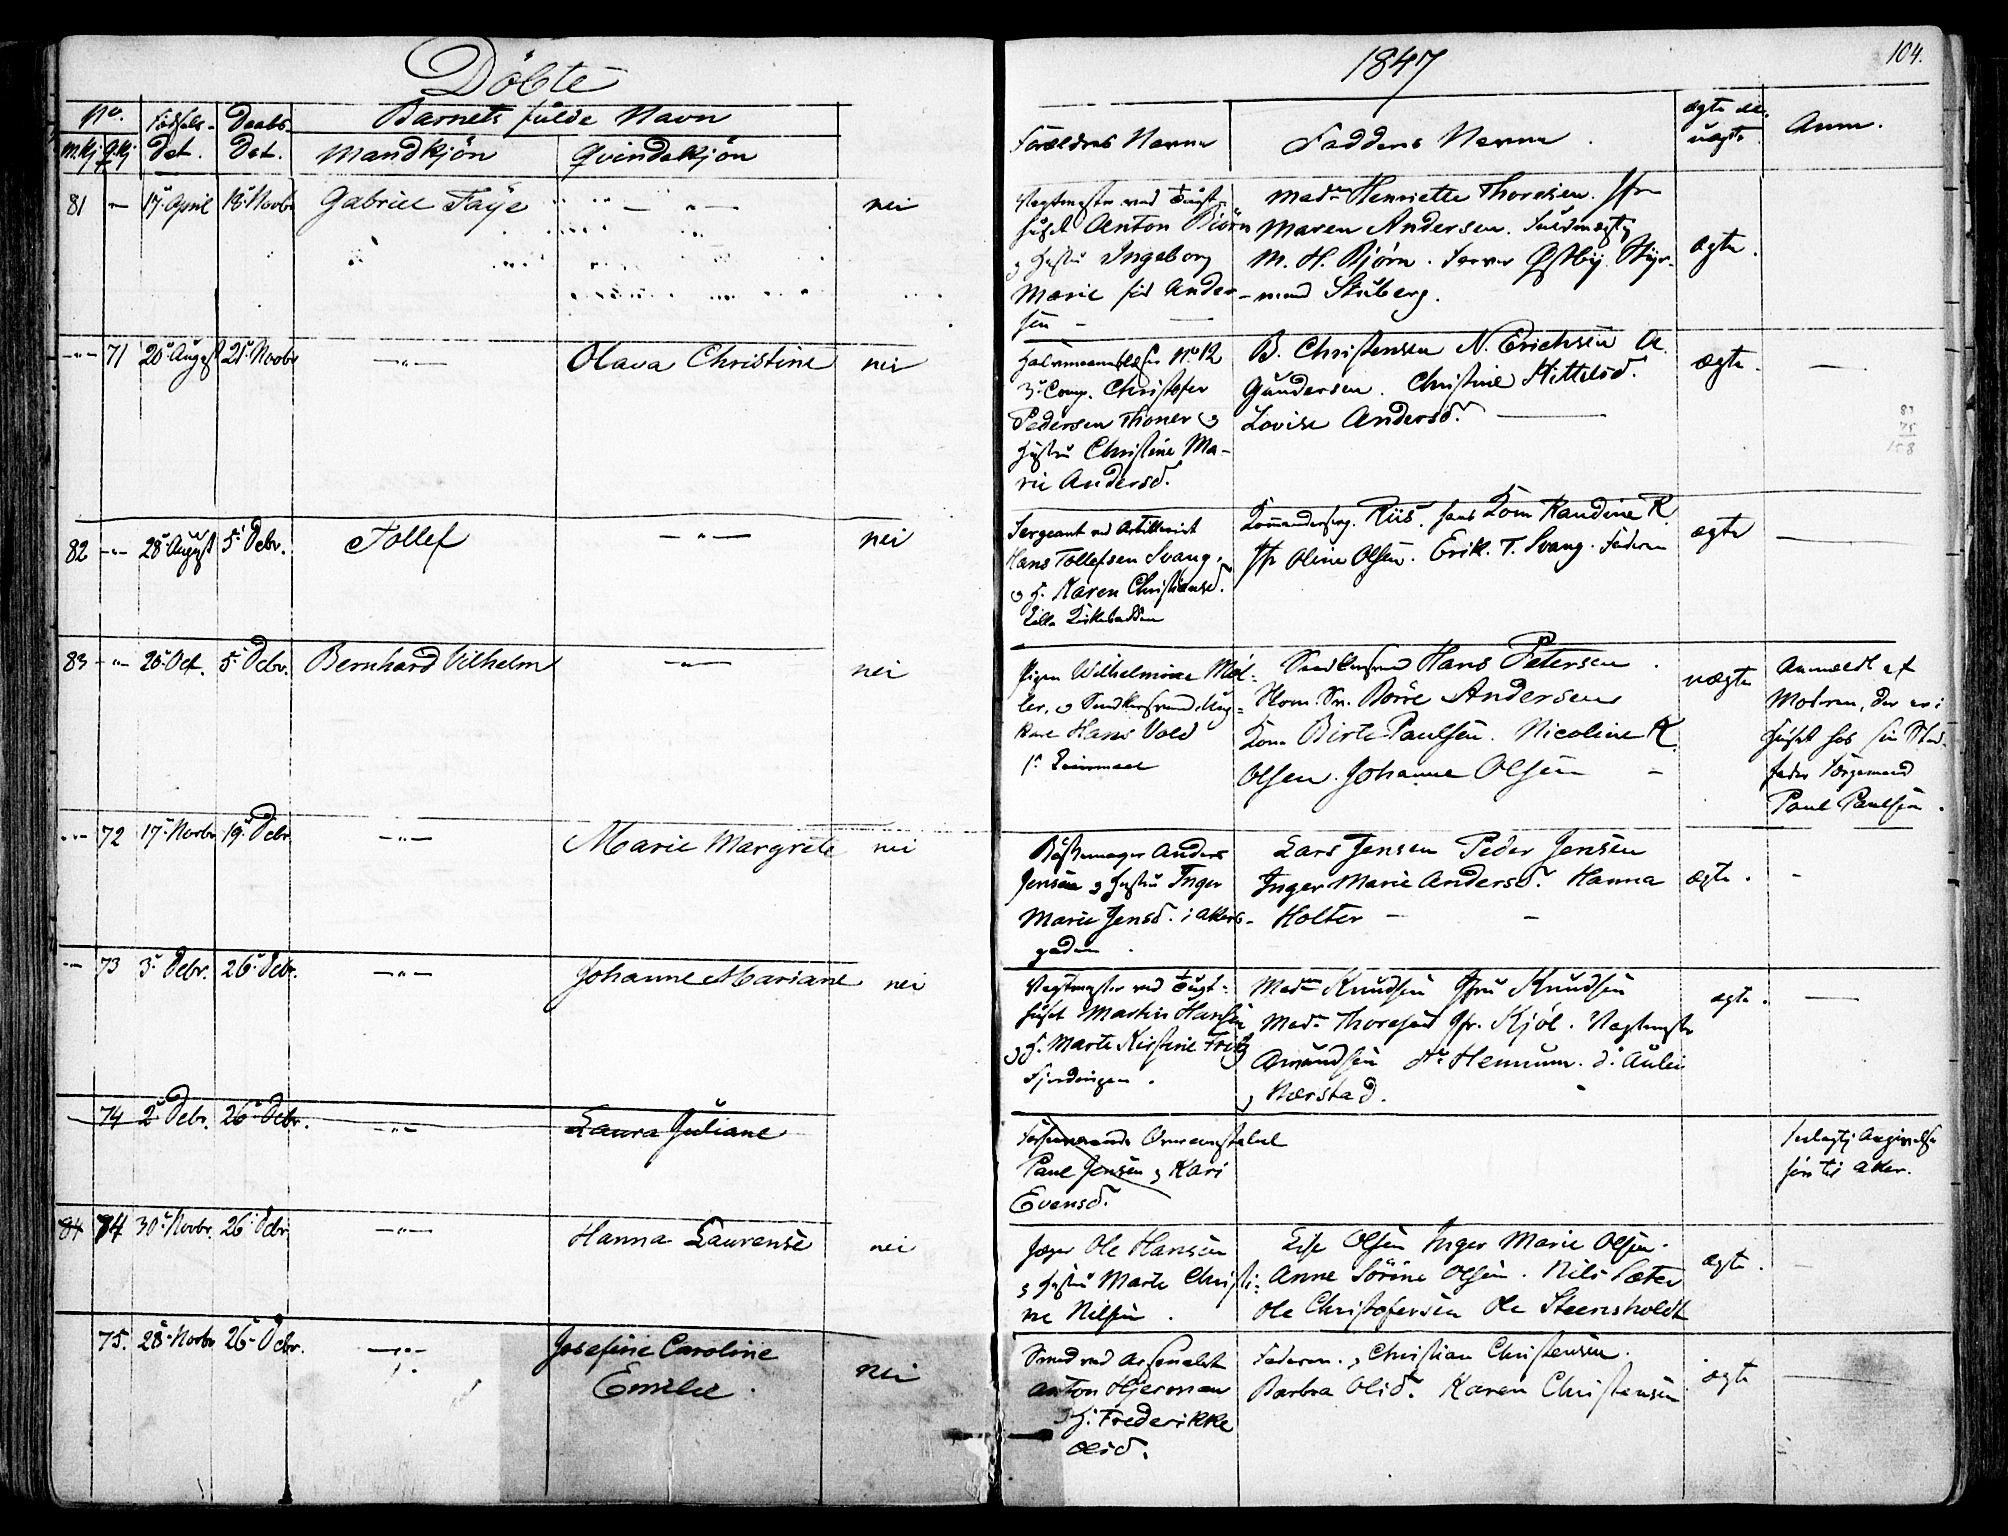 Döbte
1847
104.
No. Födsels- Daabs- Barnets fulde Navn
M.kj Q.kj Dat. Dat. Mandkjön Qvindekjön
Forældres Navne Faddernes Navne ægte el. uægte Anm.
81 - 17. April 18. Novbr Gabriel Faye nei
Vagtmester ved Tugt-
huset Anton Biörn
og Hustru Ingeborg
Marie föd Ander-
sen
Madm Henriette Thoresen. Jfr
Maren Andersen. Fuldmægtig
M. H. Björn. Farver Østby Styr-
mand Skuberg.
ægte.
71 20. August 21. Novbr Olava Christine nei
No. 12
3. Comp. Christofer
Pedersen Thoner og
Hustru Christine Ma-
rie Andersd.
B. Christensen N. Erichsen A.
Gundersen. Christine Kittelsd.
Lovise Andersd.
ægte.
83
75
158
82 28. August 5. Debr. Tollef nei
Sergeant ved Artilleriet
Hans Tollefsen Svang.
og H. Karen Christiansd.
Lille
Riis. hans Kone Randine R.
Jfr Oline Olsen. Erik. T. Svang. Faderen
ægte
83 20. Oct. 5. Debr. Bernhard Vilhelm nei
Pigen Wilhelmine Möl-
ler, og Ung-
karl Hans Vold
1. Leiermaal
Hans Petersen
Hom. Sn. Börre Andersen
Kone Birte Paulsen. Nicoline K.
Olsen. Johanne Olsen
uægte
Anmeldt af
Moderen, der er i
Huset hos sin Sted-
fader Borgermand
Paul Paulsen.
72 17. Novbr 19. Debr Marie Margrete nei
Anders
Jensen og Hustru Inger
Marie Jensd. i Akers-
gaden
Lars Jensen Peder Jensen
Inger Marie Andersd. Hanna
Holter
ægte.
73 3. Debr. 26. Debr. Johanne Mariane nei
Vagtmester ved Tugt-
huset Martin Hansen
og H. Marte Kirstine Fritz
Fjerdingen.
Madm Knudsen Jfru Knudsen
Madm Thoresen Jfr. Kjöl. Vagtmestr
Amundsen Hennum. d. Aulie
og Nærstad.
ægte.
74 2. Debr. 26. Debr. Laura Juliane
Paul Jensen og Kari
Evensd.
Angivelse
hen til Aker.
84 74 30. Novbr. 26. Debr Hanna Laurense nei
Jæger Ole Hansen
og Hustru Marte Christi-
ne Nilsen.
Else Olsen Inger Marie Olsen.
Anne Sörine Olsen. Nils Sæter
Ole Christofersen Ole Steensholdt
ægte.
75. 28. Novbr 26. Debr. Josefine Caroline
Emelie. nei
Smed ved Arsenalet
Anton Hjerman
og H. Frederikke
Olsd.
Faderen. og Christian Christensen.
Barbra Olsd. Karen Christensen
ægte